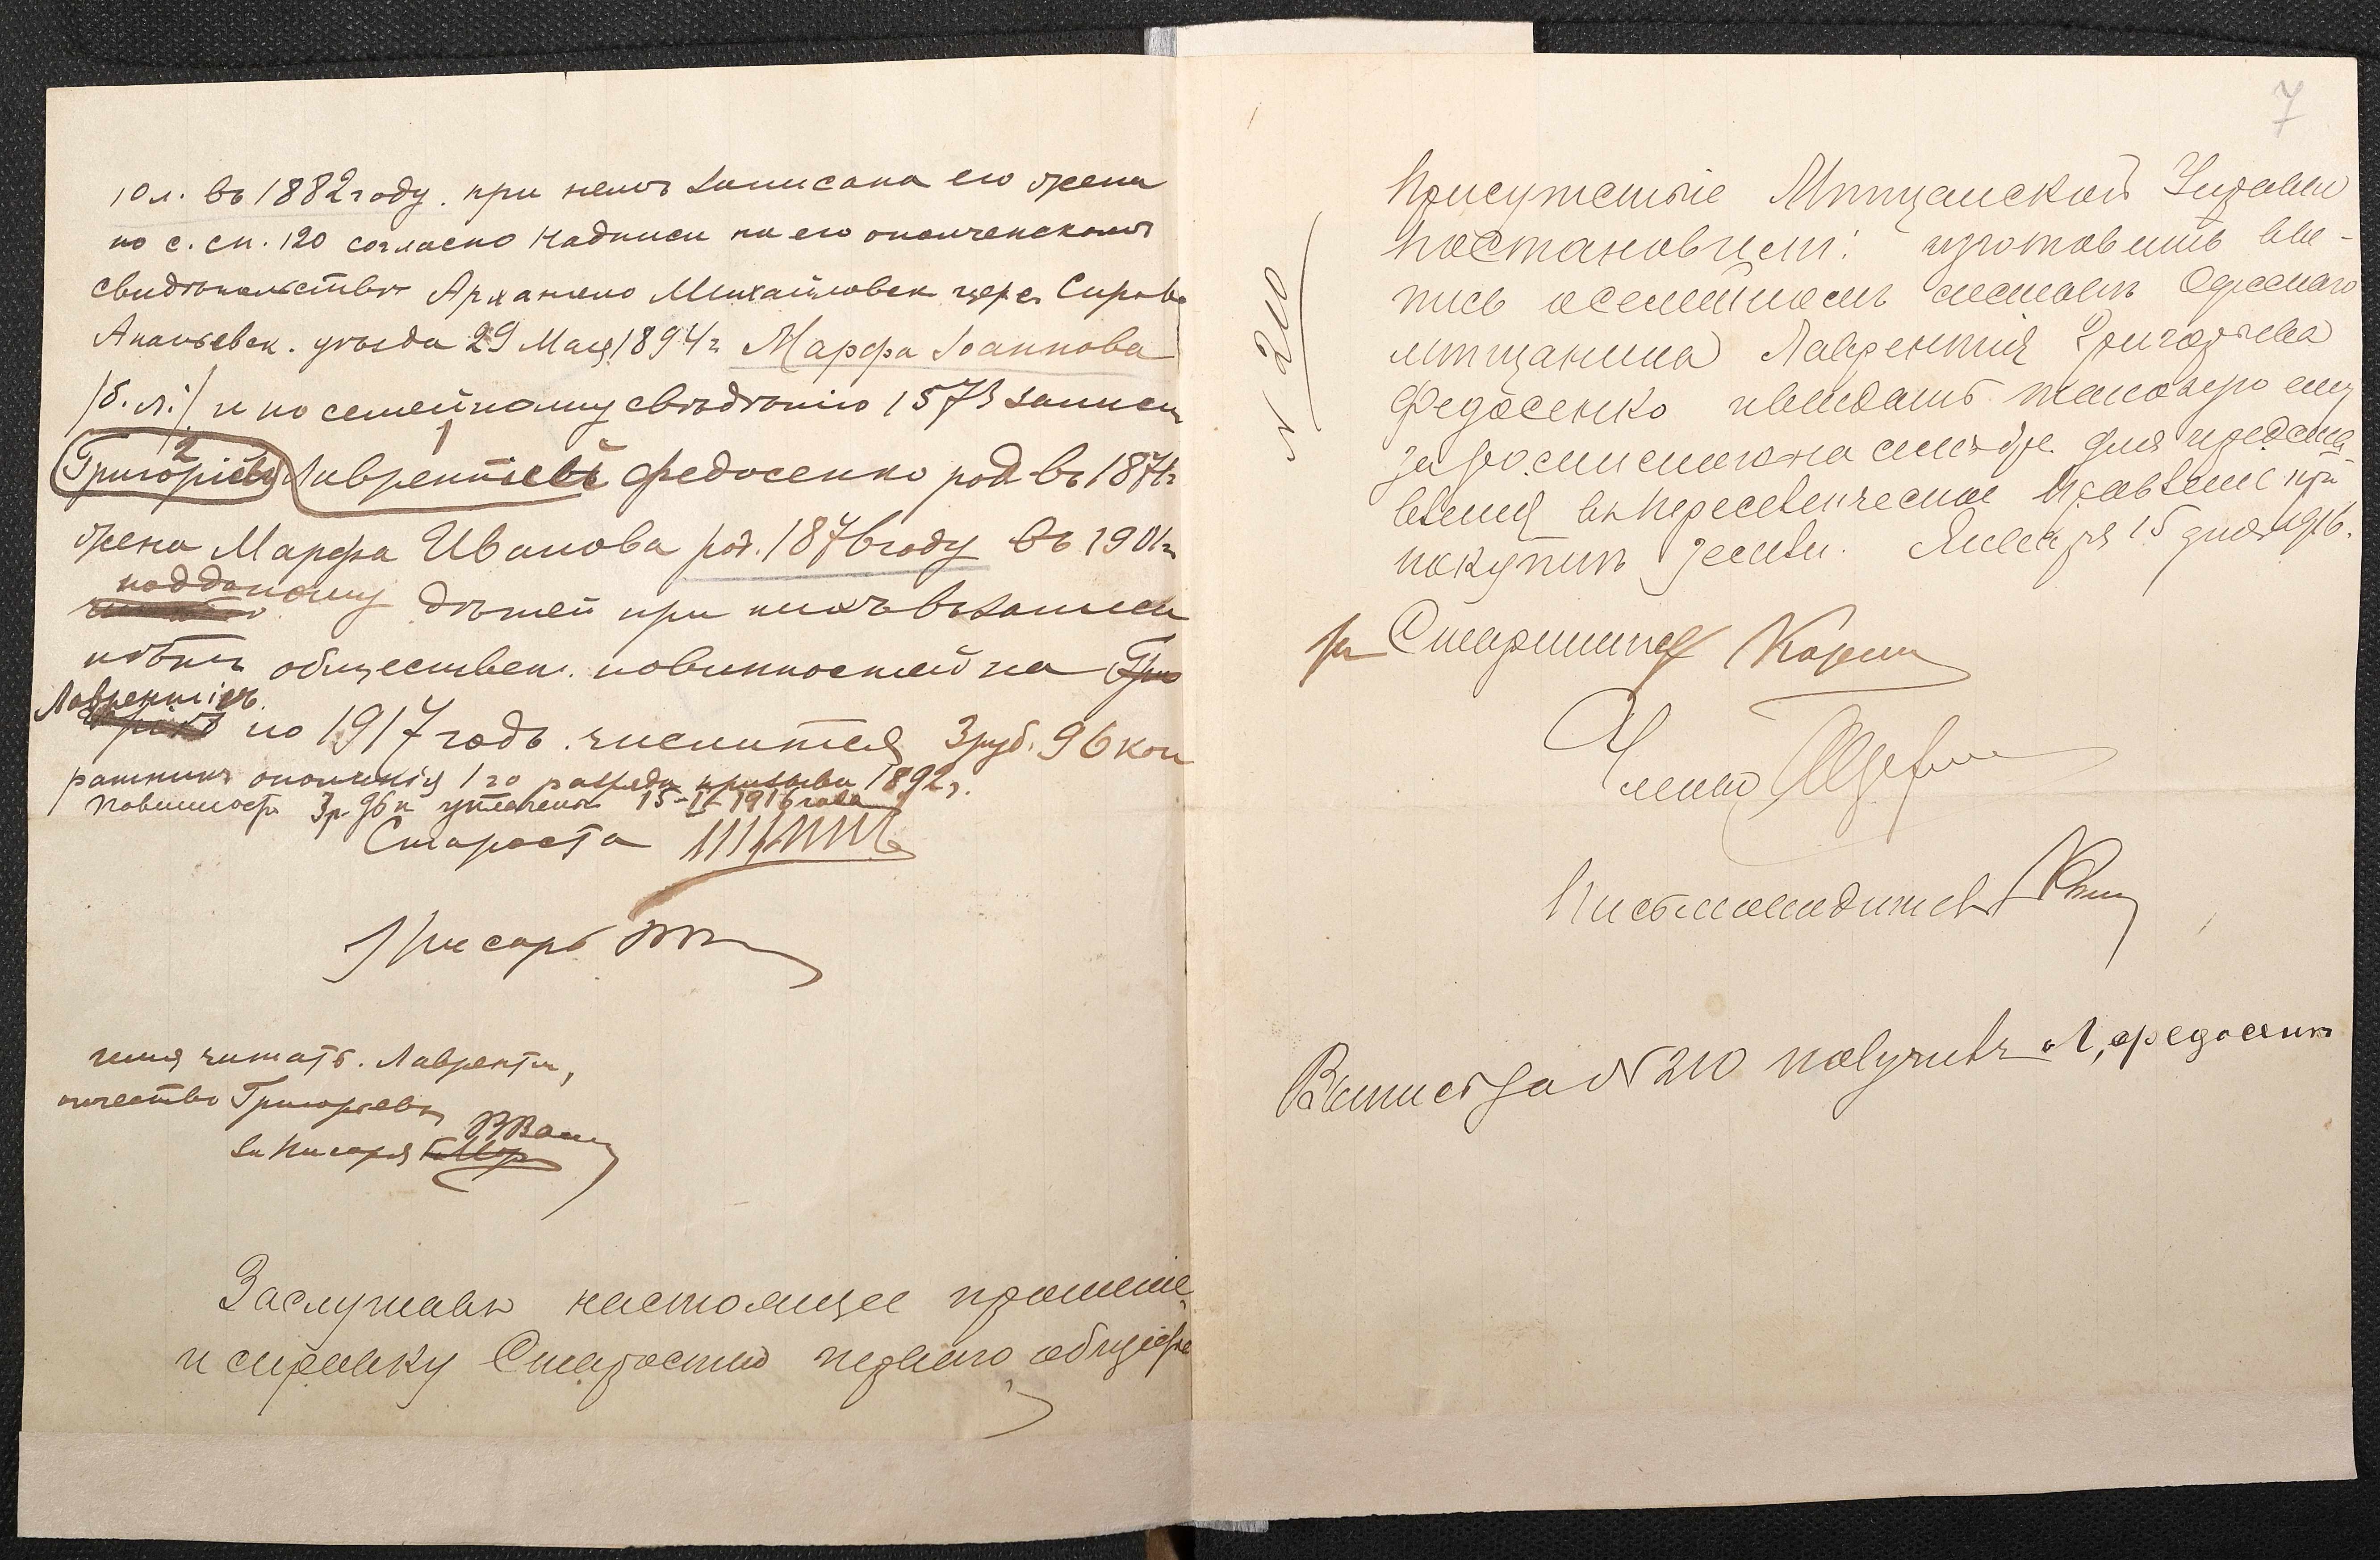 10 л. въ 1882 году. при немъ записана его жена
по с. сп. 120 согласно надписи на его ополченскомъ
свидѣтельствѣ Архангело Михайловск церк. Сирово
Ананьевск. уѣзда 29 Мая 1894 г. Марфа Іоаннова
/б. л:/ и по семейному свѣдѣнію 1573 записан
Григоріевъ 2 Лаврентіевъ 1 Федосенко род въ 1871 г
жена Марфа Иванова род. 1876 году въ 1901 г
поддоному дѣтей при нихъ въ записи
нѣтъ обществен. повинностей на Гри
Лаврентіѣ
по 1917 годъ числится 3 руб. 96 коп
ратникъ ополченія 1го разряда призыва 1892 г.
Повинност 3 р. 96 к уплачены 15-I-1916 года
Староста
Писарь
имя читать. Лаврентій,
отчество Григорьевъ
За Писаря
Заслушавъ настоящее прошеніе
и справку Старосты перваго общества
7
Присутствіе Мѣщанской Управы
постановили: изготовить вы-
пись о семейномъ составѣ Одесскаго
мѣщанина Лаврентія Григорьева
Федосенко и выдать таковую ему
за роспискою на семъ же для предста
вленія въ Переселенческое Правленіе при
покупкѣ земли. Января 15 дня 1916.
N 210
за Старшина
Члены
Письмоводитель
Выпись за N 210 получилъ Л, Федосенко